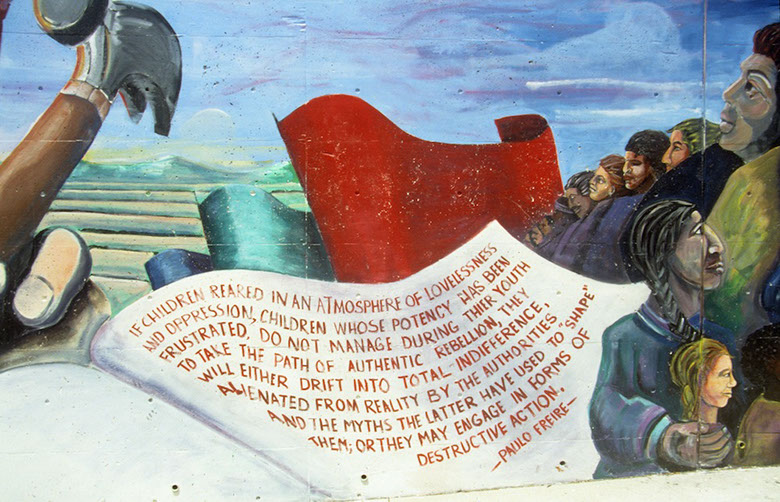 IF CHILDREN REARED IN AN ATMOSPHERE OF LOVELESSNESS
AND OPPRESSION, CHILDREN WHOSE POTENCY HAS BEEN
FRUSTRATED, DO NOT MANAGE DURING THIER YOUTH
TO TAKE THE PATH OF AUTHENTIC REBELLION, THEY
WILL EITHER DRIFT INTO TOTAL INDIFFERENCE,
ALIENATED FROM REALITY BY THE AUTHORITIES
AND THE MYTHS THE LATTER HAVE USED TO "SHAPE"
THEM; OR THEY MAY ENGAGE IN FORMS OF
DESTRUCTIVE ACTION.
—PAULO FREIRE—